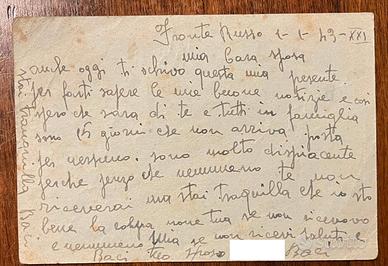 Fronte Russo 1-1-43-XXI
mia Cara sposa
anche oggi ti schivo questa mia presente
per farti sapere le mie buone notizie e così
spero che sara di te e tutti in famiglia
sono 15 giorni che non arriva posta
per nesuno. sono molto dispiacente
perche penzo che nemmeno te non
riceverai ma stai traquilla che io sto
bene la colpa none tua se non ricevovo
e nemmeno mia se non ricevi saluti e
Baci tuo sposo Baci
stai tranquilla Baci